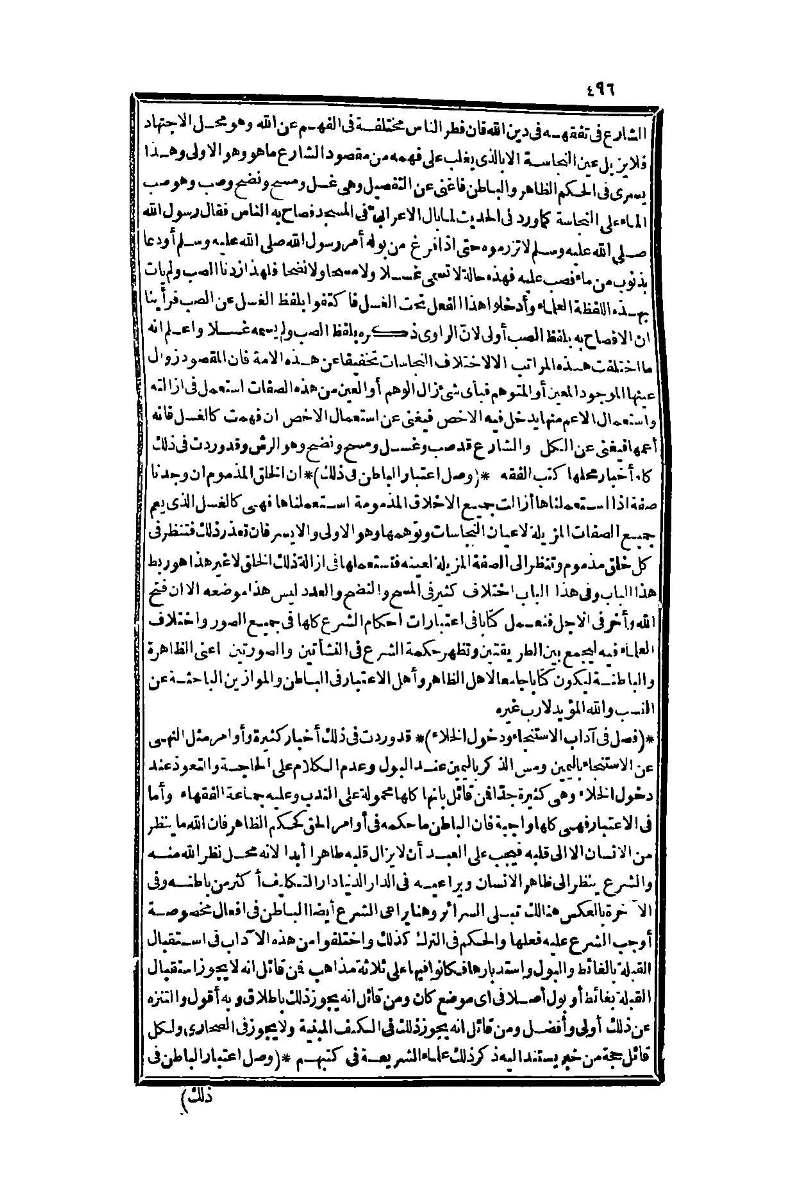 ٤٩٦
الشارع فى تفقهه فى دين الله فان فطر الناس مختلفة فى الفهم عن الله وهو محل الاجتهاد
فلا يزيل عين النجاسة الا بالذى يغلب على فهمه من مقصود الشارع ما هو وهو الاولى وهذا
يسرى فى الحكم الظاهر والباطن فاغنى عن التفصيل وهى غسل ومسح ونضح وصب وهو صب
الماء على النجاسة كما ورد فى الحديث لما بال الاعرابى فى المسجد فصاح به الناس فقال رسول الله
صلى الله عليه وسلم لا تزرموه حتى اذا فرغ من بوله أمر رسول الله صلى الله عليه وسلم أو دعا
بذنوب من ماء فصب عليه فهذه حالة لا تسمى غسلا ولا مسحا ولا نضحا فلهذا زدنا الصب ولم يأت
بهذه اللفظة العلماء وأدخلوا هذا الفعل تحت الغسل فاكتفوا بلفظ الغسل عن الصب فرأينا
ان الافصاح به بلفظ الصب أولى لانّ الراوى ذكره بلفظ الصب ولم يسمه غسلا واعلم انه
ما اختلفت هذه المراتب الا لاختلاف النجاسات تخفيفا عن هذه الامة فان المقصود زوال
عينها الموجود المعين أو المتوهم فبأى شئ زال الوهم أو العين من هذه الصفات استعمل فى ازالته
واستعمال الاعم منها يدخل فيه الاخص فيغنى عن استعمال الاخص ان فهمت كالغسل فانه
أعمها فيغنى عن الكل والشارع قد صب وغسل ومسح ونضح وهو الرش وقد وردت فى ذلك
كله أخبار محلها كتب الفقه *(وصل اعتبار الباطن فى ذلك)* ان الخلق المذموم ان وجدنا
صفة اذا استعملناها أزالت جميع الاخلاق المذمومة استعملناها فهى كالغسل الذى يعم
جميع الصفات المزيلة لاعيان النجاسات وتوهمها وهو الاولى والايسر فان تعذر ذلك فتنظر فى
كل خلق مذموم وتنظر الى الصفة المزيلة لعينه فتستعملها فى ازالة ذلك الخلق لا غير هذا هو ربط
هذا الباب وفى هذا الباب اختلاف كثير فى المسح والنضح والعدد ليس هذا موضعه الا ان فتح
الله وأخر فى الاجل فنعمل كتابا فى اعتبارات احكام الشرع كلها فى جميع الصور واختلاف
العلماء فيه ليجمع بين الطريقتين وتظهر حكمة الشرع فى النشأتين والصورتين اعنى الظاهرة
والباطنة ليكون كتابا جامعا لاهل الظاهر وأهل الاعتبار فى الباطن والموازين الباحثة عن
النسب والله المؤيد لا رب غيره
*(فصل فى آداب الاستنجاء ودخول الخلاء)* قد وردت فى ذلك أخبار كثيرة وأوامر مثل النهى
عن الاستنجاء باليمين ومس الذكر باليمين عند البول وعدم الكلام على الحاجة والتعوذ عند
دخول الخلاء وهى كثيرة جدّا فمن قائل بانها كلها محمولة على الندب وعليه جماعة الفقهاء وأما
فى الاعتبار فهى كلها واجبة فان الباطن ما حكمه فى أوامر الحق كحكم الظاهر فان الله ما ينظر
من الانسان الا الى قلبه فيجب على العبد أن لا يزال قلبه طاهرا أبدا لانه محل نظر الله منه
والشرع ينظر الى ظاهر الانسان ويراعيه فى الدار الدنيا دار التكليف أكثر من باطنه وفى
الآخرة بالعكس هنالك تبلى السرائر وهنا يراعى الشرع أيضا الباطن فى افعال مخصوصة
أوجب الشرع عليه فعلها والحكم فى الترك كذلك واختلفوا من هذه الآداب فى استقبال
القبلة بالغائط والبول واستدبارها فكانوا فيها على ثلاثة مذاهب فمن قائل انه لا يجوز استقبال
القبلة بغائط أو بول أصلا فى اى موضع كان ومن قائل انه يجوز ذلك باطلاق وبه أقول والتنزه
عن ذلك أولى وأفضل ومن قائل انه يجوز ذلك فى الكنف المبنية ولا يجوز فى الصحارى ولكل
قائل حجة من خبر يستند اليه ذكر ذلك علماء الشريعة فى كتبهم *(وصل اعتبار الباطن فى
ذلك)